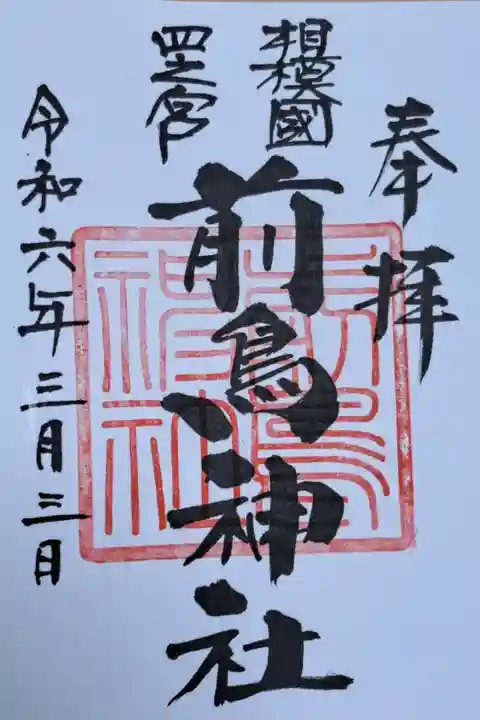 奉拝
相模國
四之宮
前鳥神社
令和六年三月三日
前鳥
神社